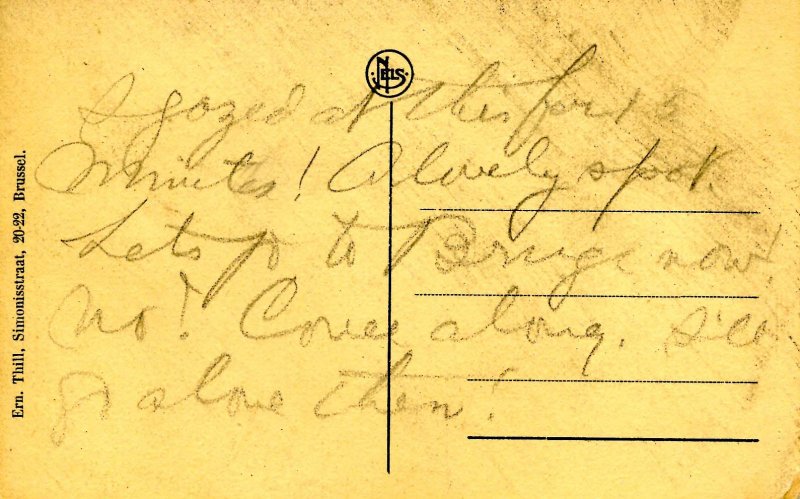 NELS
I gazed at this for 15
minutes! A lovely spot.
Lets go to Bruge now!
No! Come along. I'll
go alone then!
Ern. Thill, Simonisstraat, 20-22, Brussel.